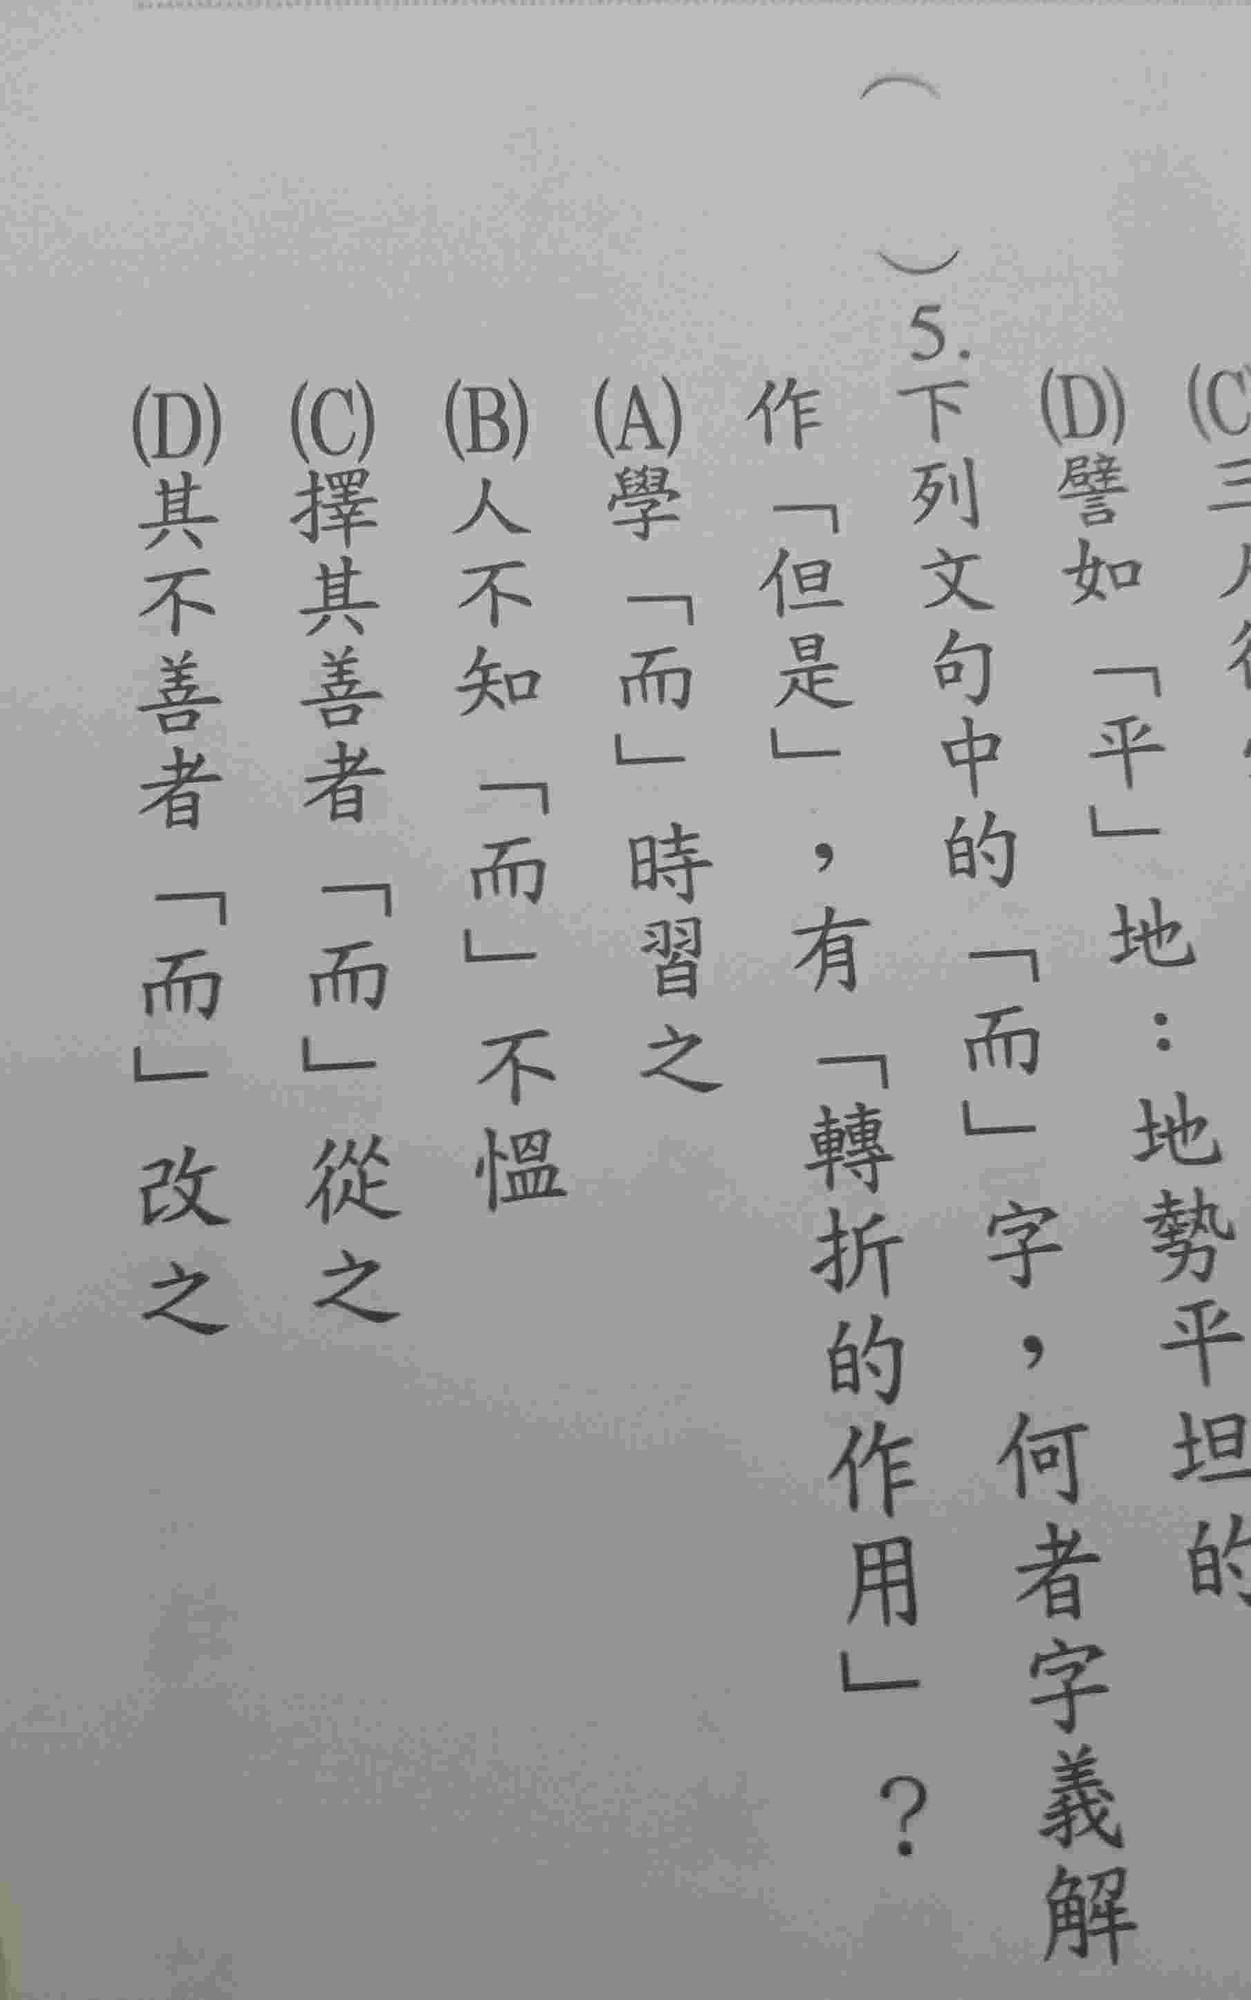 (D)譬如「平」地：地勢平坦的
(　　)5.下列文句中的「而」字，何者字義解
作「但是」，有「轉折的作用」？
(A)學「而」時習之
(B)人不知「而」不慍
(C)擇其善者「而」從之
(D)其不善者「而」改之